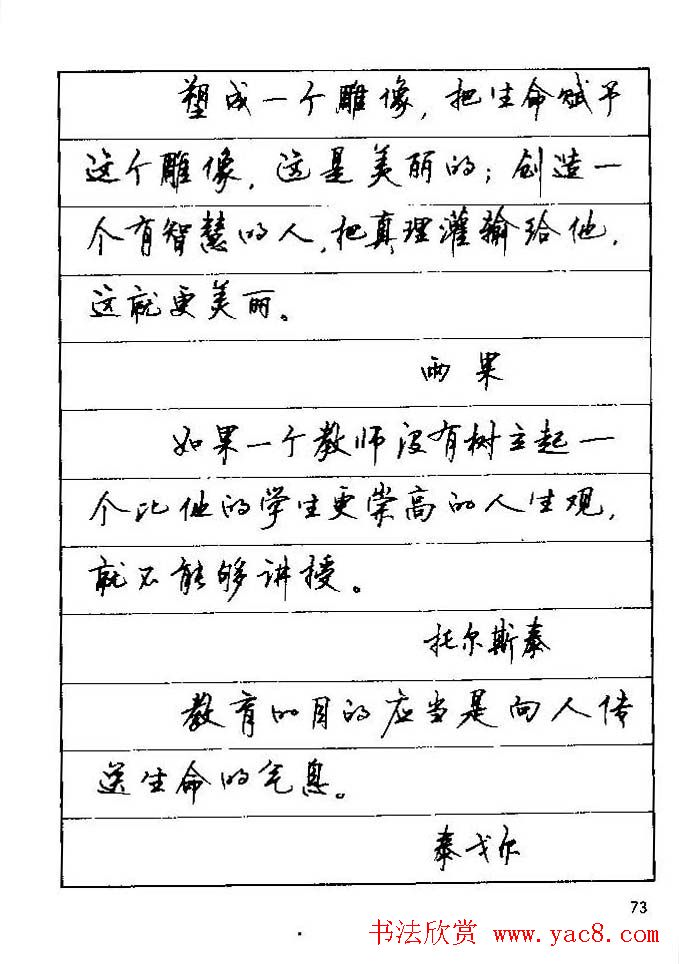 塑成一个雕像，把生命赋予
这个雕像，这是美丽的；创造一
个有智慧的人，把真理灌输给他，
这就更美丽。
雨果
如果一个教师没有树立起一
个比他的学生更崇高的人生观，
就不能够讲授。
托尔斯泰
教育的目的应当是向人传
送生命的气息。
泰戈尔
73
书法欣赏 www.yac8.com